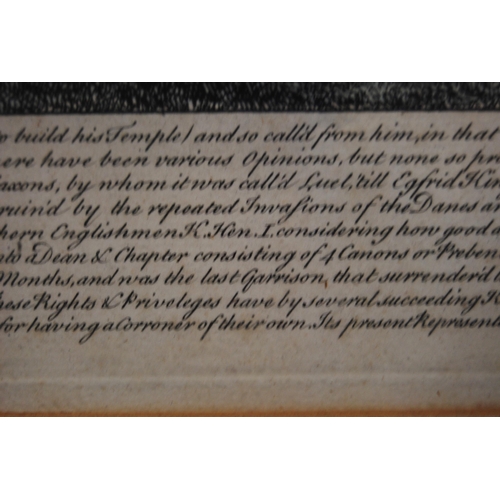 o build his Temple) and so call'd from him, in that
here have been various Opinions, but none so pro
Saxons, by whom it was call'd Luel, 'till Egfrid Kin
ruin'd by the repeated Invasions of the Danes an
thern Englishmen K. Hen. I. considering how good a
into a Dean & Chapter consisting of 4 Canons or Preben
Months, and was the last Garrison, that surrender'd
these Rights & Priveleges have by several succeeding K
for having a Corroner of their own. Its present Represent